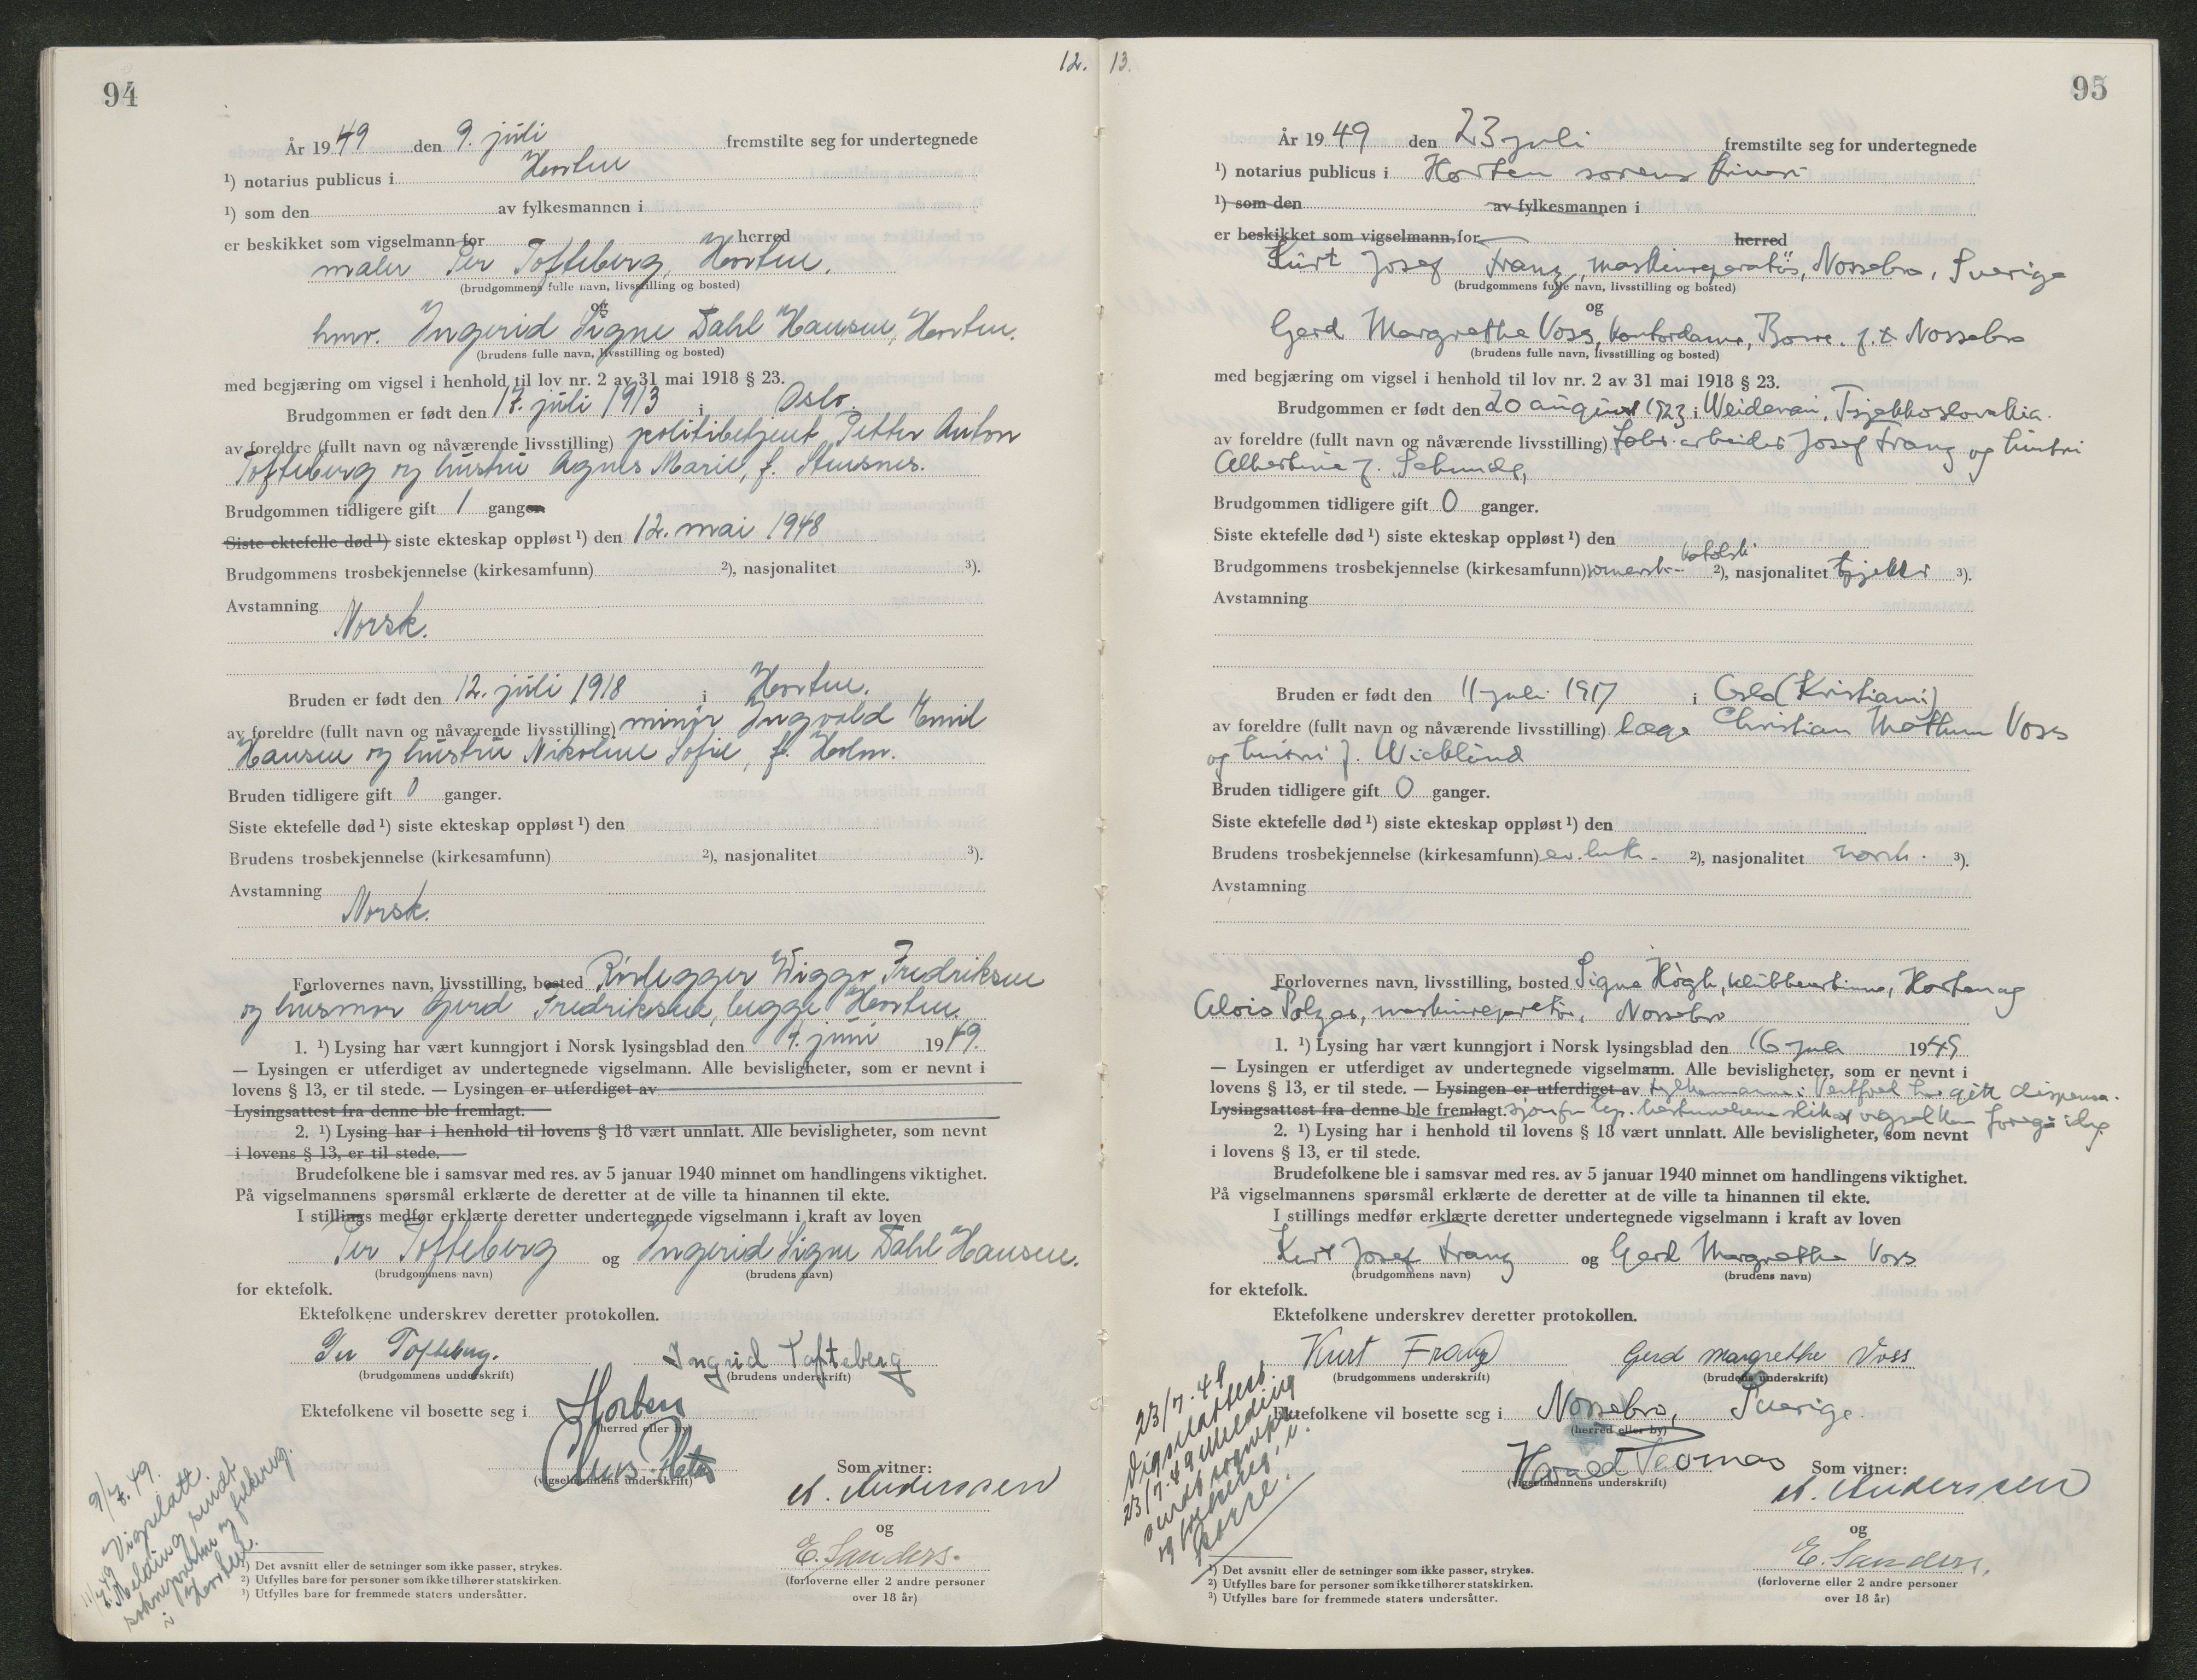 94
12.
År 1949 den 9. júli fremstilte seg for undertegnede
¹) notarius publicus i Horten
¹) som den av fylkesmannen i
er beskikket som vigselmann for herred
maler Per Tofteberg, Horten.
(brudgommens fulle navn, livsstilling og bosted)
og
hmr. Ingerid Signe Dahl Hansen, Horten.
(brudens fulle navn, livsstilling og bosted)
med begjæring om vigsel i henhold til lov nr. 2 av 31 mai 1918 § 23.
Brudgommen er født den 17. júli 1913 i Oslo.
av foreldre (fullt navn og nåværende livsstilling) politibetjent Petter Anton
Tofteberg og hústrú Agnes Marie, f. Stusnes.
Brudgommen tidligere gift 1 gangen
Siste ektefelle død ¹) siste ekteskap oppløst ¹) den 12. mai 1948
Brudgommens trosbekjennelse (kirkesamfunn) ²), nasjonalitet ³).
Avstamning
Norsk.
Bruden er født den 12. júli 1918 i Horten.
av foreldre (fullt navn og nåværende livsstilling) minør Ingvald Emil
Hansen og hústrú Nikoline Sofie, f. Holm.
Bruden tidligere gift 0 ganger.
Siste ektefelle død ¹) siste ekteskap oppløst ¹) den
Brudens trosbekjennelse (kirkesamfunn) ²), nasjonalitet ³).
Avstamning
Norsk.
Forlovernes navn, livsstilling, bosted Rørlegger Wiggo Fredriksen
og húsmor Gerd Fredriksen, begge Horten.
1. ¹) Lysing har vært kunngjort i Norsk lysingsblad den 9. júni 1949.
— Lysingen er utferdiget av undertegnede vigselmann. Alle bevisligheter, som er nevnt i
lovens § 13, er til stede. — Lysingen er utferdiget av
Lysingsattest fra denne ble fremlagt.
2. ¹) Lysing har i henhold til lovens § 18 vært unnlatt. Alle bevisligheter, som nevnt
i lovens § 13, er til stede.
Brudefolkene ble i samsvar med res. av 5 januar 1940 minnet om handlingens viktighet.
På vigselmannens spørsmål erklærte de deretter at de ville ta hinannen til ekte.
I stillings medfør erklærte deretter undertegnede vigselmann i kraft av loven
Per Tofteberg og Ingerid Signe Dahl Hansen.
(brudgommens navn) (brudens navn)
for ektefolk.
Ektefolkene underskrev deretter protokollen.
Per Tofteberg. Ingrid Tofteberg
(brudgommens underskrift) (brudens underskrift)
Ektefolkene vil bosette seg i Horten
(herred eller by)
(vigselmannens underskrift) Som vitner:
A. Anderssen
og
E. Sanders.
(forloverne eller 2 andre personer
over 18 år)
9/7. 49.
Vigselatt.
11/7 49 Melding sendt
soknepresten og folkereg.
i Horten.
¹) Det avsnitt eller de setninger som ikke passer, strykes.
²) Utfylles bare for personer som ikke tilhører statskirken.
³) Utfylles bare for fremmede staters undersåtter.
13.
95
År 1949 den 23 juli fremstilte seg for undertegnede
¹) notarius publicus i Horten sorens
¹) som den av fylkesmannen i
er beskikket som vigselmann for herred
Kurt Josef Franz, maskinreparatør, Nossebro, Sverige
(brudgommens fulle navn, livsstilling og bosted)
og
Gerd Margrethe Voss, kontordame, Borre. f.t. Nossebro
(brudens fulle navn, livsstilling og bosted)
med begjæring om vigsel i henhold til lov nr. 2 av 31 mai 1918 § 23.
Brudgommen er født den 20 august 1923 i Tsjekkoslovakia.
av foreldre (fullt navn og nåværende livsstilling) fabr. arbeider Josef Franz og hústrú
Albertine f.
Brudgommen tidligere gift 0 ganger.
Siste ektefelle død ¹) siste ekteskap oppløst ¹) den
Brudgommens trosbekjennelse (kirkesamfunn) romersk-katolsk ²), nasjonalitet ³).
Avstamning
Bruden er født den 11 juli 1917 i Oslo (Kristiania)
av foreldre (fullt navn og nåværende livsstilling) læge Christian Voss
og hústrú f. Wicklund
Bruden tidligere gift 0 ganger.
Siste ektefelle død ¹) siste ekteskap oppløst ¹) den
Brudens trosbekjennelse (kirkesamfunn) ev. luth. ²), nasjonalitet norsk. ³).
Avstamning
Forlovernes navn, livsstilling, bosted Signe Høgh, klubbvertinne, Horten og
Alois maskinreparatør, Nossebro
1. ¹) Lysing har vært kunngjort i Norsk lysingsblad den 16 juli 1949
— Lysingen er utferdiget av undertegnede vigselmann. Alle bevisligheter, som er nevnt i
lovens § 13, er til stede. — Lysingen er utferdiget av fylkesmannen i Vestfold har gitt dispensa-
Lysingsattest fra denne ble fremlagt. sjon fra bestemmelsene slik at vigsel kan foregå
2. ¹) Lysing har i henhold til lovens § 18 vært unnlatt. Alle bevisligheter, som nevnt
i lovens § 13, er til stede.
Brudefolkene ble i samsvar med res. av 5 januar 1940 minnet om handlingens viktighet.
På vigselmannens spørsmål erklærte de deretter at de ville ta hinannen til ekte.
I stillings medfør erklærte deretter undertegnede vigselmann i kraft av loven
Kurt Josef Franz og Gerd Margrethe Voss
(brudgommens navn) (brudens navn)
for ektefolk.
Ektefolkene underskrev deretter protokollen.
Kurt Franz Gerd Margrethe Voss
(brudgommens underskrift) (brudens underskrift)
Ektefolkene vil bosette seg i Nossebro, Sverige.
(herred eller by)
Harald Thomas
(vigselmannens underskrift) Som vitner:
A. Anderssen
og
E. Sanders,
(forloverne eller 2 andre personer
over 18 år)
23/7. 49
Vigselattest
23/7. 49 Melding
sendt sogneprest
og folkereg. i
Borre.
¹) Det avsnitt eller de setninger som ikke passer, strykes.
²) Utfylles bare for personer som ikke tilhører statskirken.
³) Utfylles bare for fremmede staters undersåtter.